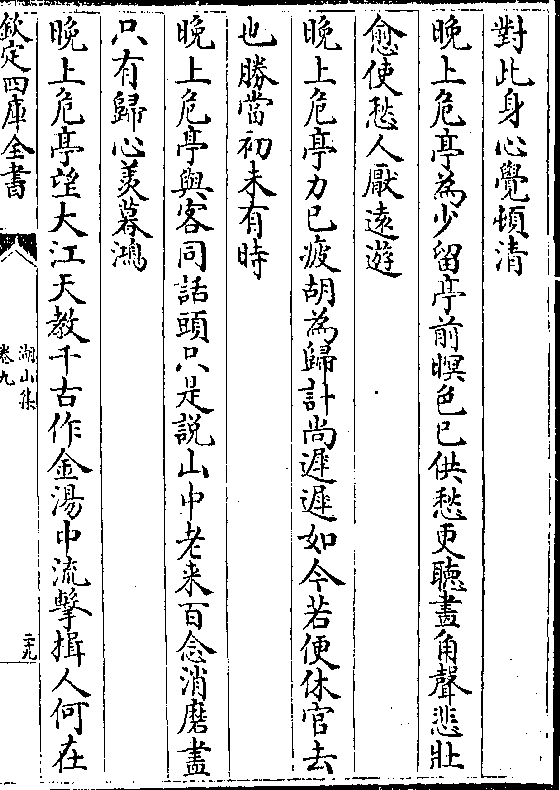 對此身心覺頓清
晚上危亭為少留亭前暝色已供愁更聽畫角聲悲壯
愈使愁人厭遠遊
晚上危亭力已疲胡為歸計尚遲遲如今若便休官去
也勝當初未有時
晚上危亭與客同話頭只是説山中老來百念消磨盡
只有歸心羨暮鴻
晚上危亭望大江天教千古作金湯中流擊揖人何在
欽定四庫全書
湖山集
卷九
二十九